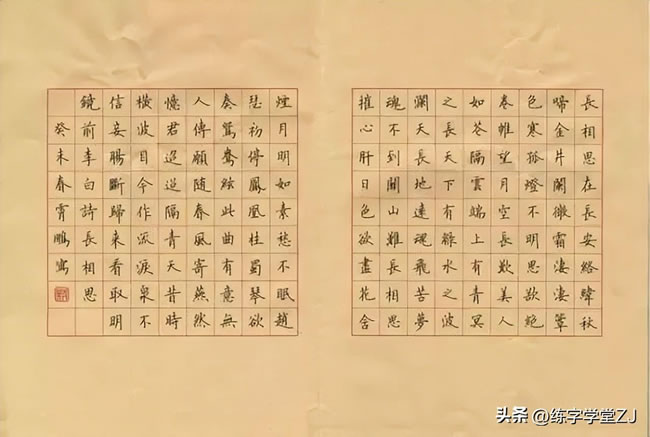 長相思在長安絡緯秋
啼金井闌微霜淒淒簟
色寒孤燈不明思欲絕
卷帷望月空長歎美人
如花隔雲端上有青冥
之長天下有綠水之波
瀾天長地遠魂飛苦夢
魂不到關山難長相思
摧心肝日色欲盡花含
煙月明如素愁不眠趙
瑟初停鳳凰柱蜀琴欲
奏鴛鴦絃此曲有意無
人傳願隨春風寄燕然
憶君迢迢隔青天昔時
橫波目今作流淚泉不
信妾腸斷歸來看取明
鏡前李白詩長相思
癸未春霄鵬寫
头条 @练字学堂ZJ